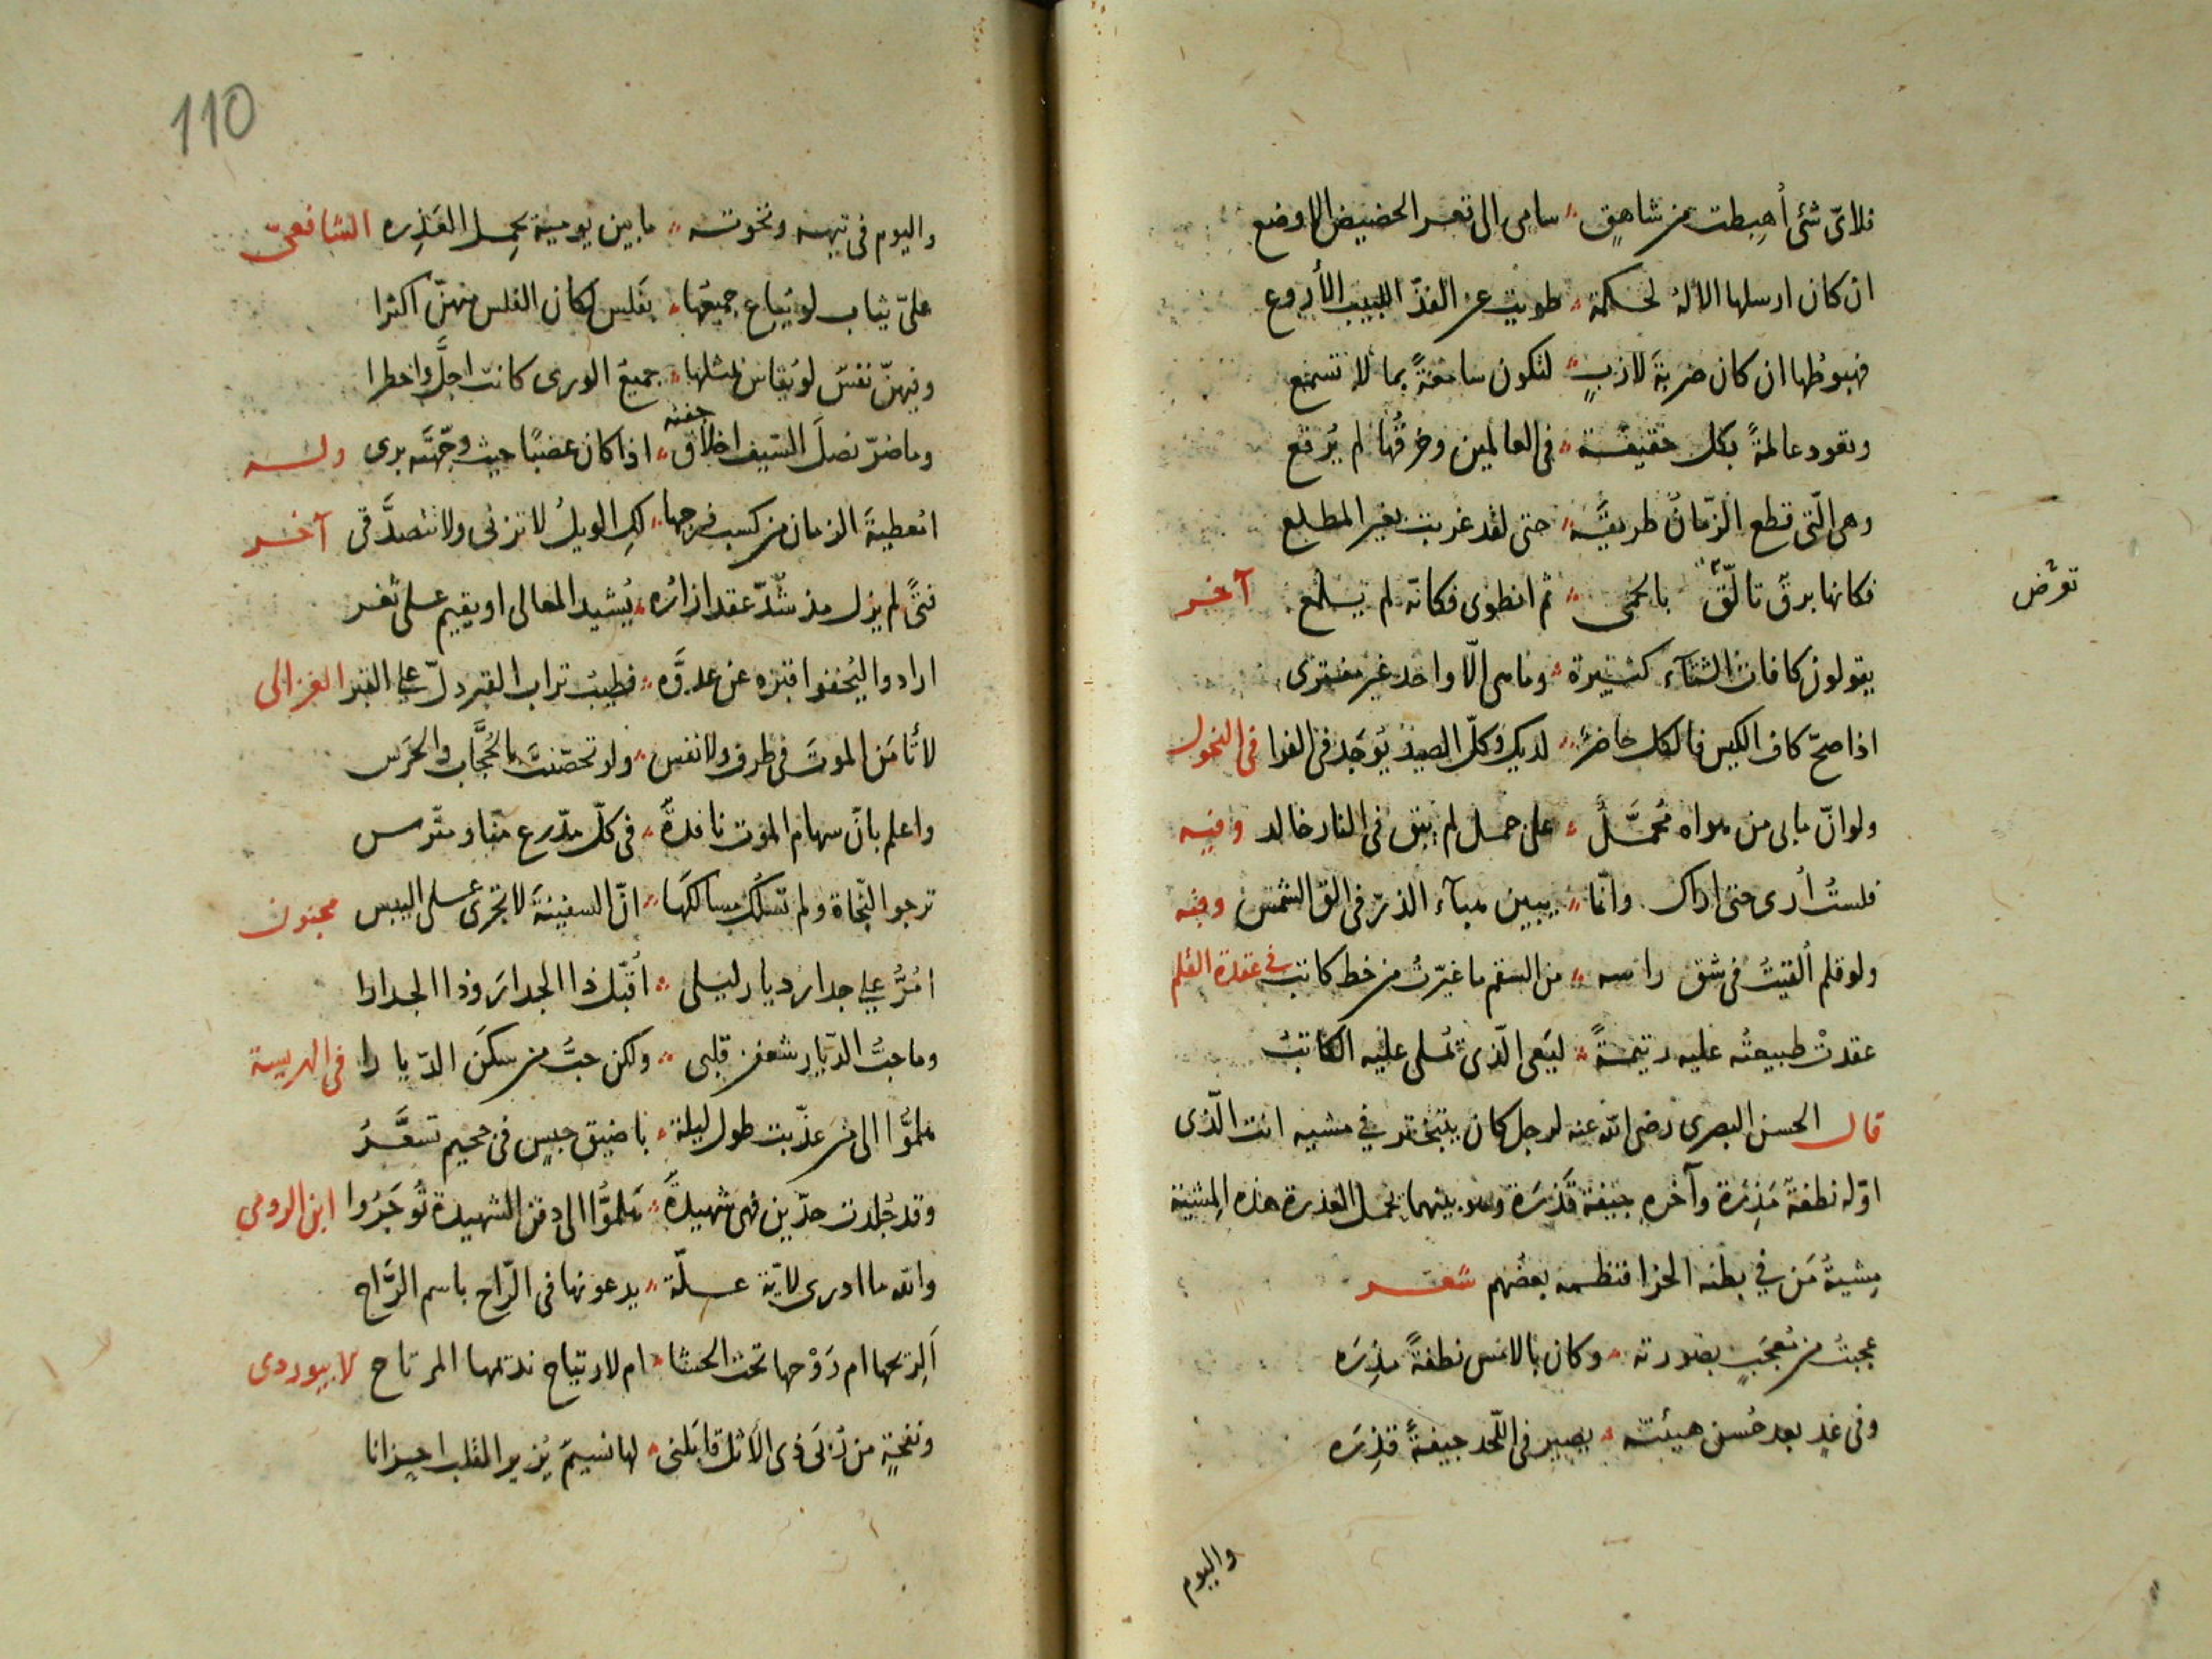 فلاىّ شئ أهبطت من شاهقٍ سامى الى قعر الحضيض الاوضع
ان كان ارسلها الالهُ لحكمة طويت عن الفذّ اللبيب الأروع
فهبوطها ان كان ضربةَ لازبٍ لتكون سامعةً بما لم تسمع
وتعود عالمةً بكل حقيقة فى العالمين وخرقُها لم يُرقع
وهى الّتى قطع الزّمانُ طريقَه حتى لقد غربت بغير المطلع
فكانها برقٌ تالّق بالحمى ثم انطوى فكانّه لم يلمع آخر
تعرّض
يقولون كافات الشتآء كثيرة وما هى الّا واحد غير مفترى
اذا صحّ كاف الكيس فالكل حاضرٌ لديك وكلّ الصيد يُوجد فى الفرا فى النحول
ولو انّ ما بى من هواه مُحمَّلٌ على جمل لم يبق فى النار خالد وفيه
فلستُ أرى حتى اراك وانّما يبين هبآء الذرّ فى الق الشمس وفيه
ولو قلم ألقيتُ فى شق راسه من السقم ما غيّرت من خط كاتب فى عقدة القلم
عقدتْ طبيعته عليه رتيمةً ليَعى الّذى تُملى عليه الكاتب
قال الحسن البصرى رضى الله عنه لرجل كان يتبختر فى مشيه انت الّذى
اوّله نطفة مَذِرَة وآخره جيفة قَذِرَة وهو بينهما يحمل العذرة هذه المِشية
مِشيةُ مَن فى بطنه الخرا فنظمه بعضُهم شعر
عجبتُ من مُعجَبٍ بصورته وكان بالامس نطفةً مَذِرَه
وفى غدٍ بعد حُسن هيئته يصير فى اللّحد جيفةً قذِرَه
واليوم
110
واليوم فى تيهه ونخوته ما بين يوميه يحمل العَذِره الشافعىّ
علىّ ثياب لو تُباع جميعُها بفَلس لكان الفلس منهنّ اكثرا
وفيهنّ نفسٌ لو يُقاس بمثلها جميعُ الورى كانت اجلَّ واخطرا
وما ضرّ نصلَ السّيف اخلاق جفنه اذا كان عضبًا حيث وجّهتَه برى وله
امُعطيةَ الزمان من كسب فرجها لكِ الويلُ لا تزنى ولا تتصدَّقى آخر
فتًى لم يزل مذ شُدّ عقد ازاره يُشيد المعالى او يقيم على ثغر
ارادوا ليُخفوا قبره عن عدوَّه فطيبُ تراب القبر دلّ على القبر الغزالى
لا تأمَن الموتَ فى طرف ولا نفس ولو تحصّنتَ بالحُجَّاب والحَرَس
واعلم بانّ سهام الموت نافذةٌ فى كلّ مدّرع منّا ومتّرس
ترجوا النّجاة ولم تسلُك مسالكَها انّ السفينةَ لا تجرى على اليبس مجنون
امُرُّ على جدار ديار ليلى اُقبّل ذا الجدارَ وذا الجدارا
وما حبُّ الدّيار شغفن قلبى ولكن حبُّ من سكَن الدّيارا فى الهريسة
هلمُّوا الى من عذّبت طول ليلة باضيق حبس فى جحيم تسعَّرُ
وقد جُلدت حدّين فهى شهيدةٌ هَلمُّوا الى دفن الشهيدة تُوجَرُوا ابن الرومى
والله ما ادرى لايّة علّة يدعونها فى الرّاح باسم الرَّاح
اَلِرِيحها ام رَوْحها تحت الحشا ام لارتياح نديمها المرتاح لابيوردى
ونفحةٍ من رُبَى ذى الأثل قابَلنى لها نسيمٌ يُزير القلب احزانا